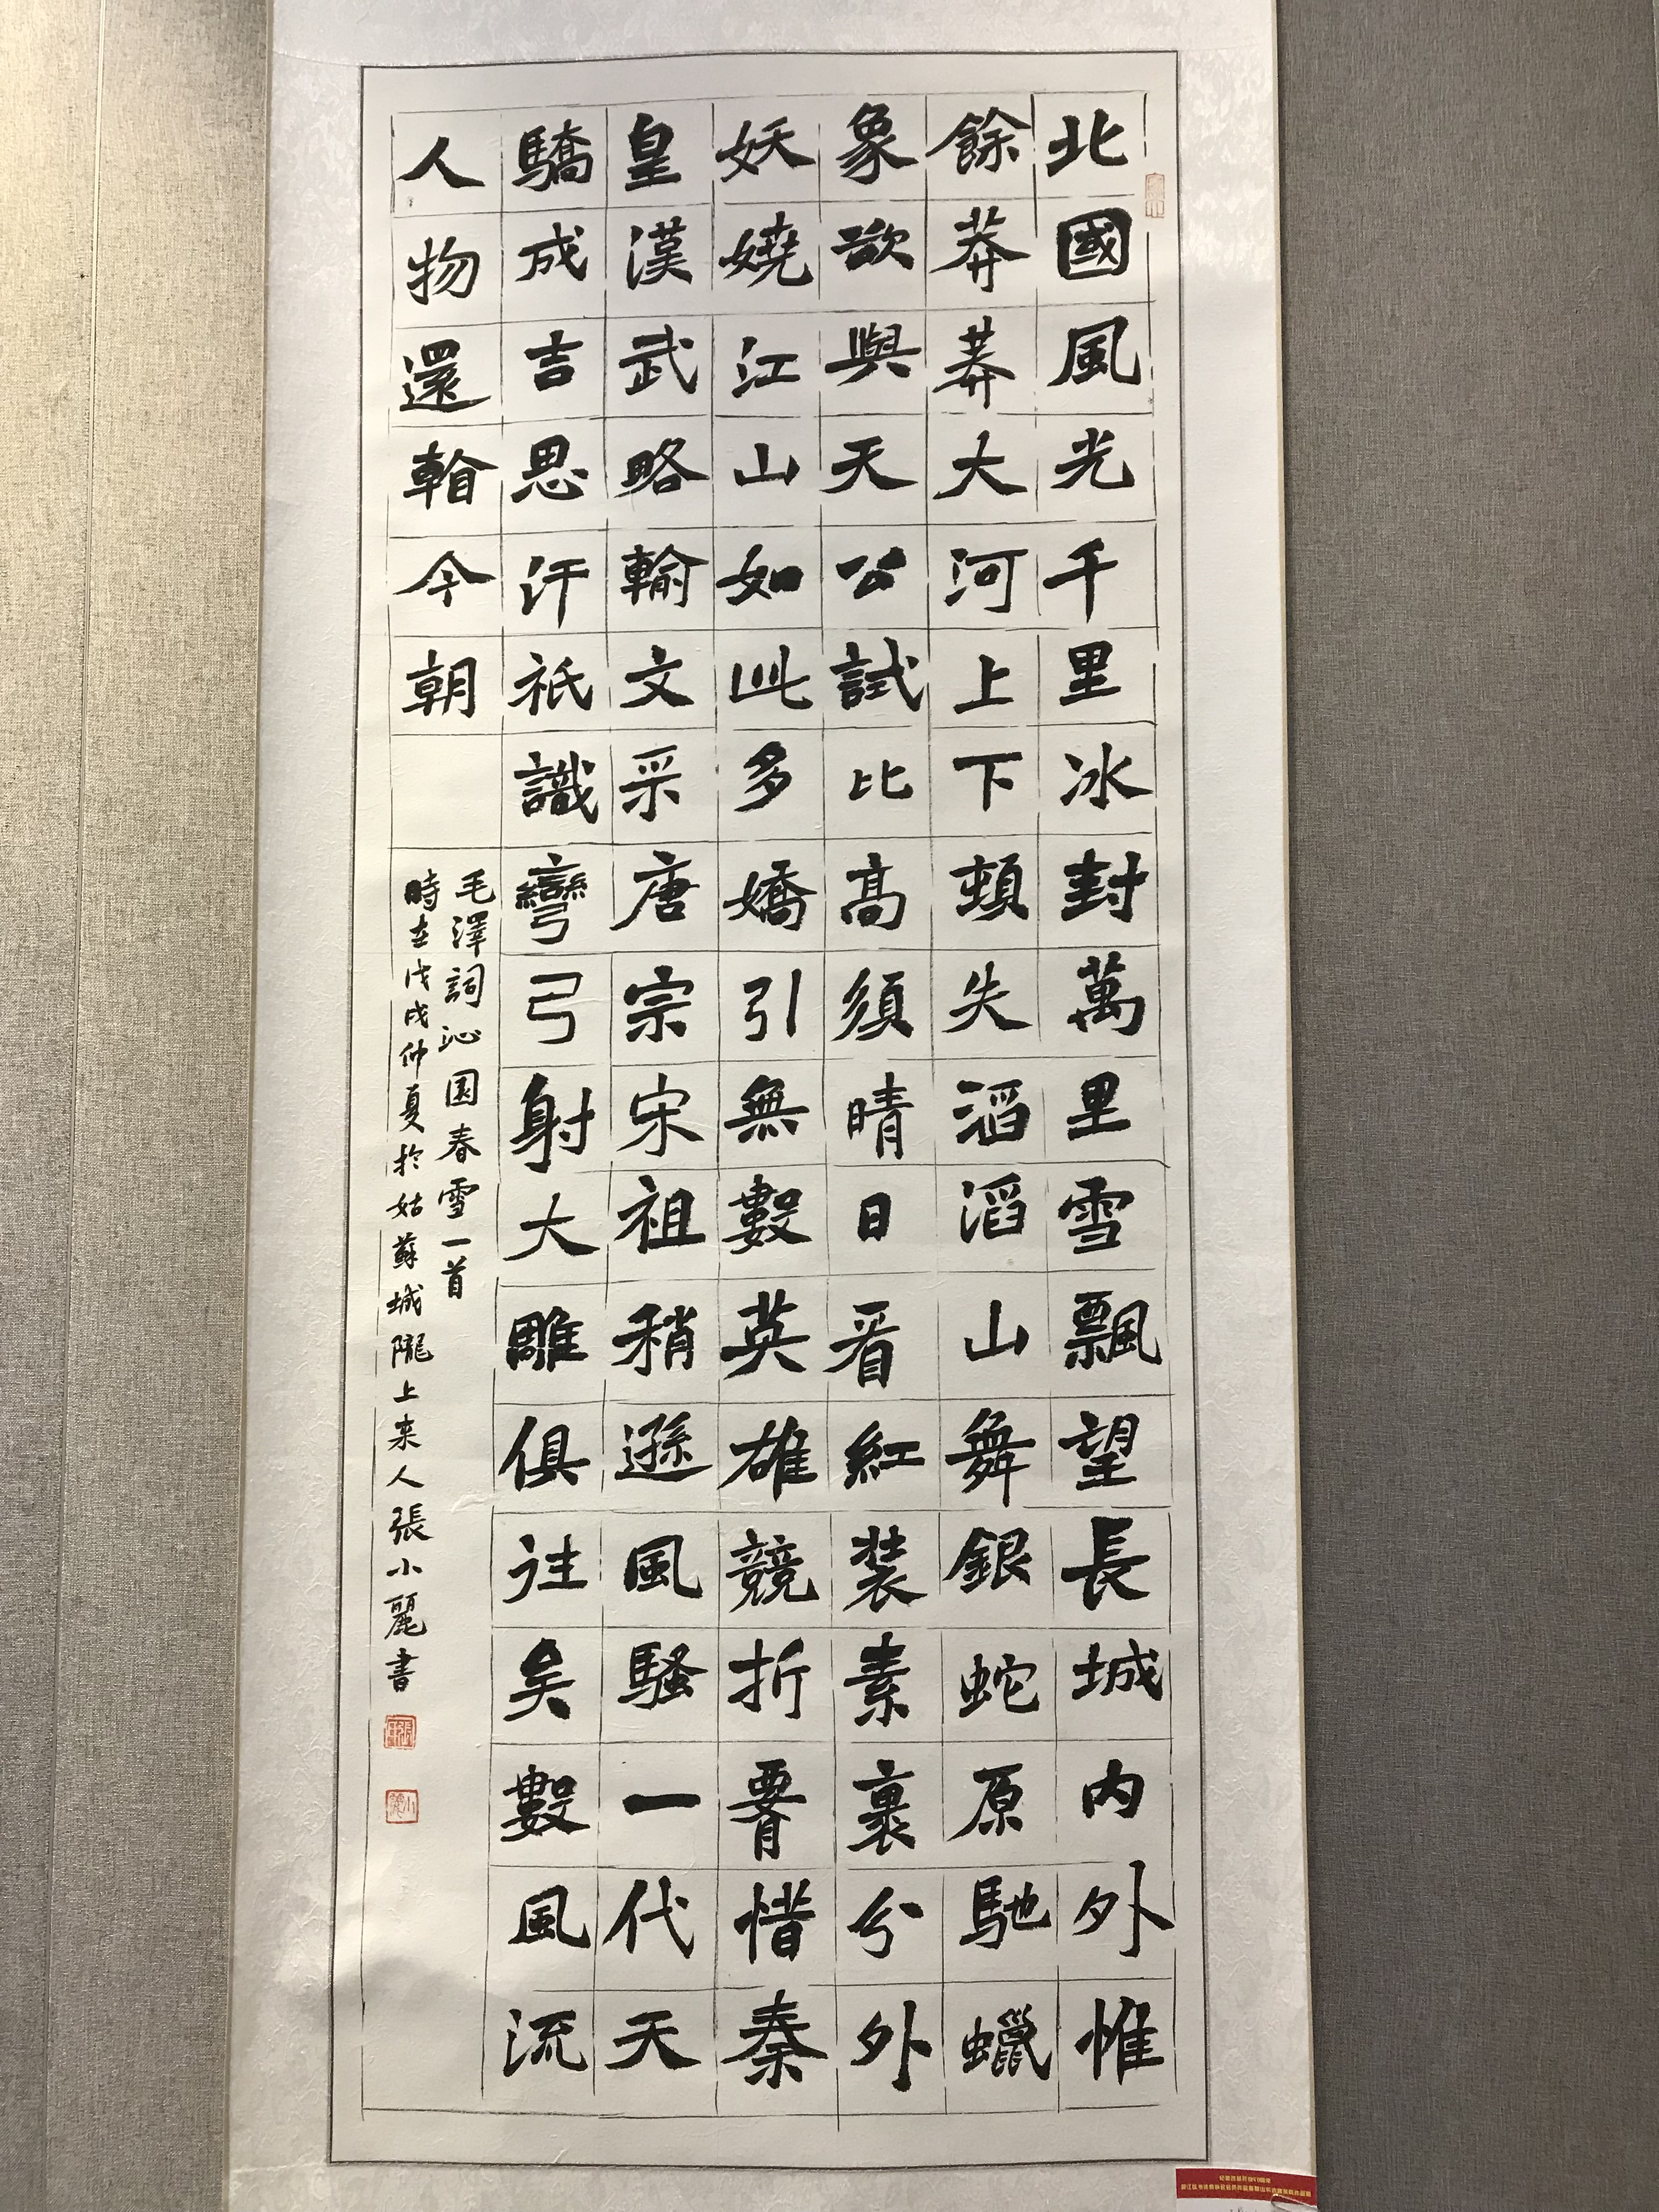 北國風光千里冰封萬里雪飄望長城内外惟
餘莽莽大河上下頓失滔滔山舞銀蛇原馳蠟
象欲與天公試比高須晴日看紅裝素裹分外
妖嬈江山如此多嬌引無數英雄競折腰惜秦
皇漢武略輸文采唐宗宋祖稍遜風騷一代天
驕成吉思汗祇識彎弓射大雕俱往矣數風流
人物還看今朝
毛澤詞沁园春雪一首
時在戊戌仲夏於姑蘇城隴上来人張小麗書